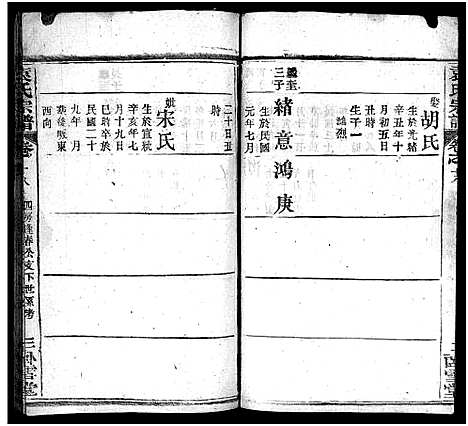 娶
胡氏
生於光緒
辛丑年十
月初五日
丑時
生子一
鴻烈
義奎
三子
緒意鴻庚
生於民國
元年七月
二十日丑
時
妣
宋氏
生於宣統
辛亥年七
月十九日
巳時卒於
民國二十
九年 月
葬後畈東
西向
袁氏宗譜
四房逢春公支下世系考
臥雪堂